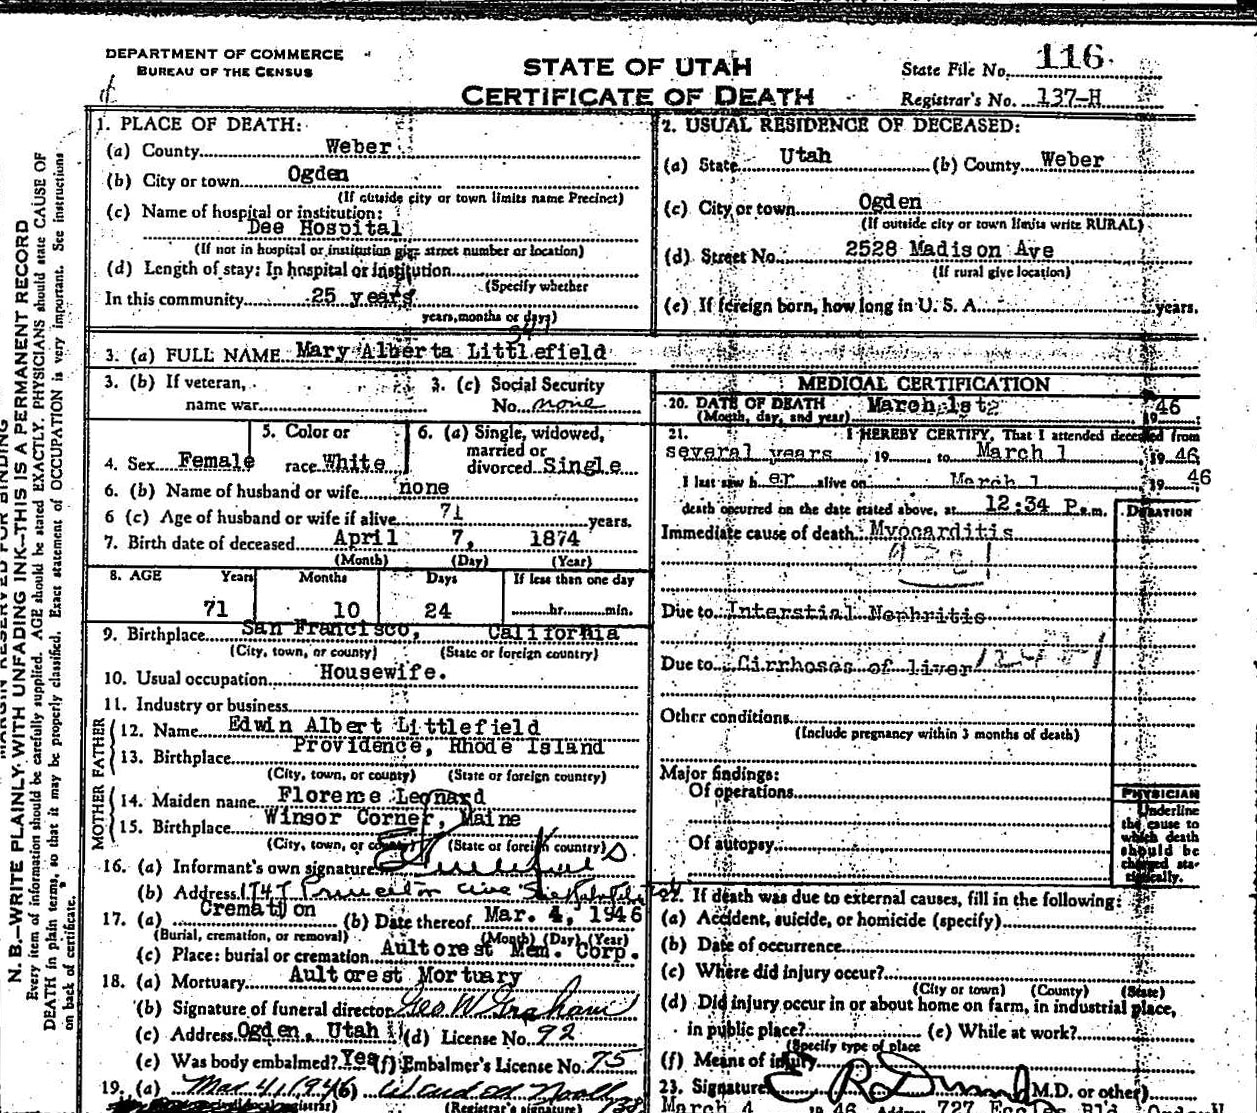 DEPARTMENT OF COMMERCE
BUREAU OF THE CENSUS
STATE OF UTAH
CERTIFICATE OF DEATH
State File No. 116
Registrar's No. 137-H
MARGIN RESERVED FOR BINDING
N. B.—WRITE PLAINLY, WITH UNFADING INK—THIS IS A PERMANENT RECORD
Every item of information should be carefully supplied. AGE should be stated EXACTLY. PHYSICIANS should state CAUSE OF
DEATH in plain terms, so that it may be properly classified. Exact statement of OCCUPATION is very important. See instructions
on back of certificate.
1. PLACE OF DEATH:
(a) County Weber
(b) City or town Ogden
(If outside city or town limits name Precinct)
(c) Name of hospital or institution:
Dee Hospital
(If not in hospital or institution give street number or location)
(d) Length of stay: In hospital or institution
(Specify whether
In this community 25 years
years, months or days)
2. USUAL RESIDENCE OF DECEASED:
(a) State Utah (b) County Weber
(c) City or town Ogden
(If outside city or town limits write RURAL)
(d) Street No. 2528 Madison Ave
(If rural give location)
(e) If foreign born, how long in U. S. A. years.
3. (a) FULL NAME Mary Alberta Littlefield
3. (b) If veteran,
name war
3. (c) Social Security
No. none
4. Sex Female
5. Color or
race White
6. (a) Single, widowed,
married or
divorced Single
6. (b) Name of husband or wife none
6 (c) Age of husband or wife if alive 71 years.
7. Birth date of deceased April 7, 1874
(Month) (Day) (Year)
8. AGE Years Months Days If less than one day
71 10 24 hr. min.
9. Birthplace San Francisco, California
(City, town, or county) (State or foreign country)
10. Usual occupation Housewife.
11. Industry or business
FATHER
12. Name Edwin Albert Littlefield
13. Birthplace Providence, Rhode Island
(City, town, or county) (State or foreign country)
MOTHER
14. Maiden name Florence Leonard
15. Birthplace Winsor Corner, Maine
(City, town, or county) (State or foreign country)
16. (a) Informant's own signature
(b) Address 1747
17. (a) Cremation (b) Date thereof Mar. 4, 1946
(Burial, cremation, or removal) (Month) (Day) (Year)
(c) Place: burial or cremation Aultorest Mem. Corp.
18. (a) Mortuary Aultorest Mortuary
(b) Signature of funeral director Geo W Graham
(c) Address Ogden, Utah (d) License No. 92
(e) Was body embalmed? Yes (f) Embalmer's License No. 75
19. (a) Mar 4, 1946
(Registrar's signature)
MEDICAL CERTIFICATION
20. DATE OF DEATH March 1st 19 46
(Month, day, and year)
21. I HEREBY CERTIFY, That I attended deceased from
several years 19 to March 1 19 46,
I last saw h er alive on March 1 19 46
death occurred on the date stated above, at 12:34 P.m.
DURATION
Immediate cause of death Myocarditis
Due to Interstial Nephritis
Due to Cirrhoses of liver
Other conditions
(Include pregnancy within 3 months of death)
Major findings:
Of operations
Of autopsy
PHYSICIAN
Underline
the cause to
which death
should be
charged sta-
tistically.
22. If death was due to external causes, fill in the following:
(a) Accident, suicide, or homicide (specify)
(b) Date of occurrence
(c) Where did injury occur?
(City or town) (County) (State)
(d) Did injury occur in or about home on farm, in industrial place,
in public place? (e) While at work?
(Specify type of place
(f) Means of injury
23. Signature M.D. or other)
March 4 19 46 727